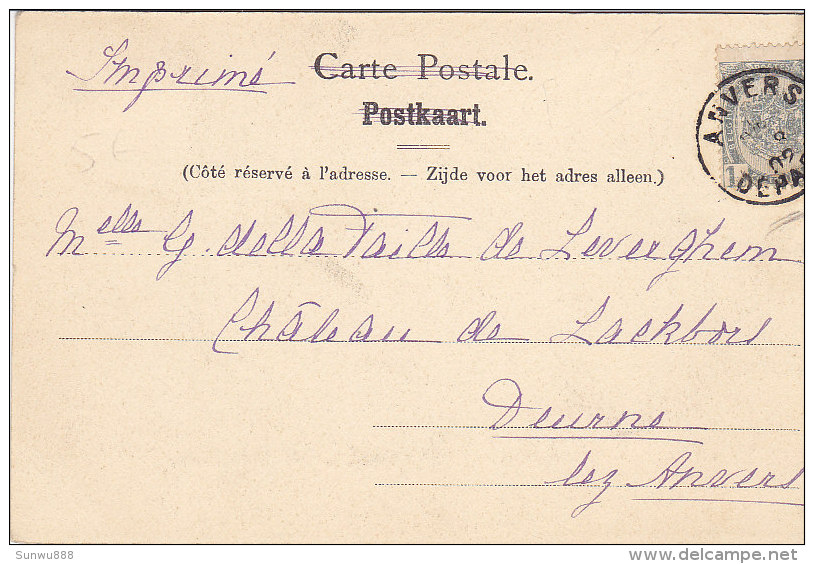 Imprimé
Carte Postale.
Postkaart.
(Côté réservé à l'adresse. — Zijde voor het adres alleen.)
ANVERS
8
02
DEPA
1
Melle G. della Faille de Leverghem
Château de Lackbors
Deurne
lez Anvers
Sunwu888
delcampe.net